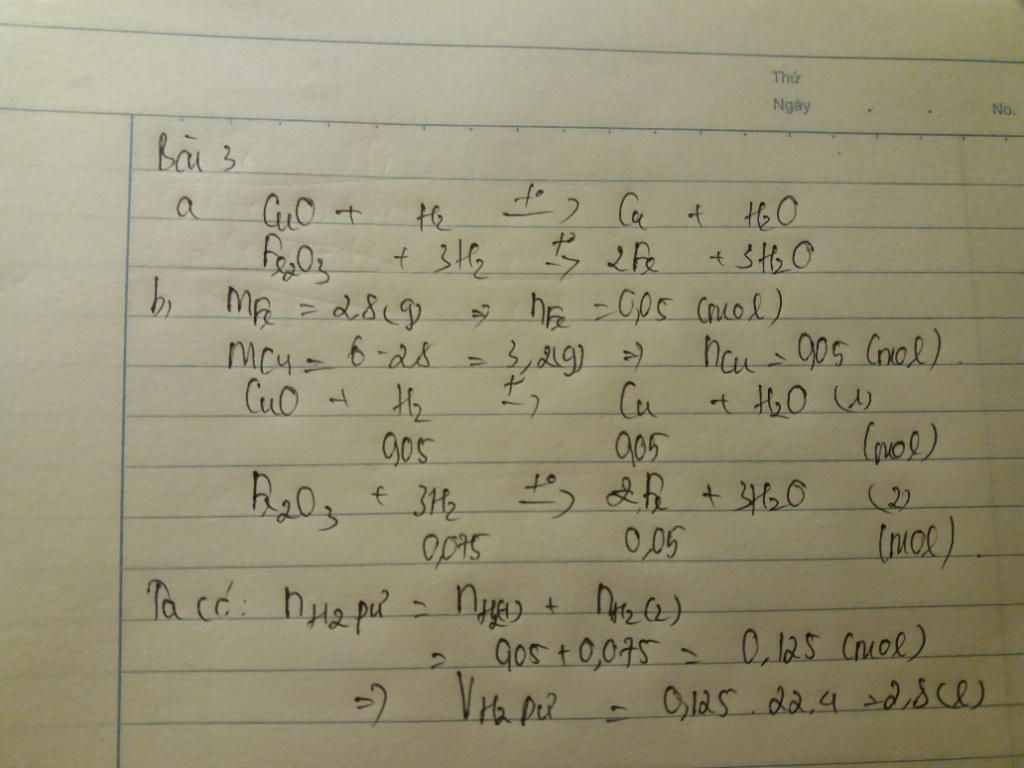 Thứ
Ngày . . No.
Bài 3
a CuO + H2 t°→ Cu + H2O
Fe2O3 + 3H2 t°→ 2Fe + 3H2O
b, mFe = 28(g) ⇒ nFe = 0,05 (mol)
mCu = 6-28 = 3,2(g) ⇒ nCu = 0,05 (mol).
CuO + H2 t°→ Cu + H2O (1)
0,05 0,05 (mol)
Fe2O3 + 3H2 t°→ 2Fe + 3H2O (2)
0,075 0,05 (mol).
Ta có: nH2 pứ = nH2(1) + nH2(2)
= 0,05 + 0,075 = 0,125 (mol)
⇒ VH2 pứ = 0,125 . 22,4 = 2,8(l)